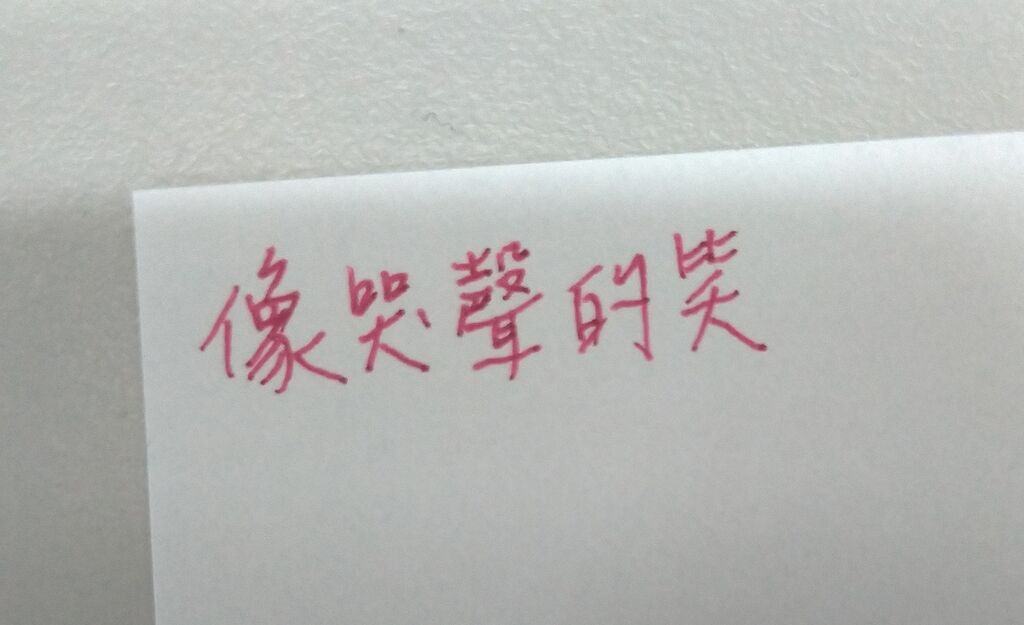 像哭聲的笑